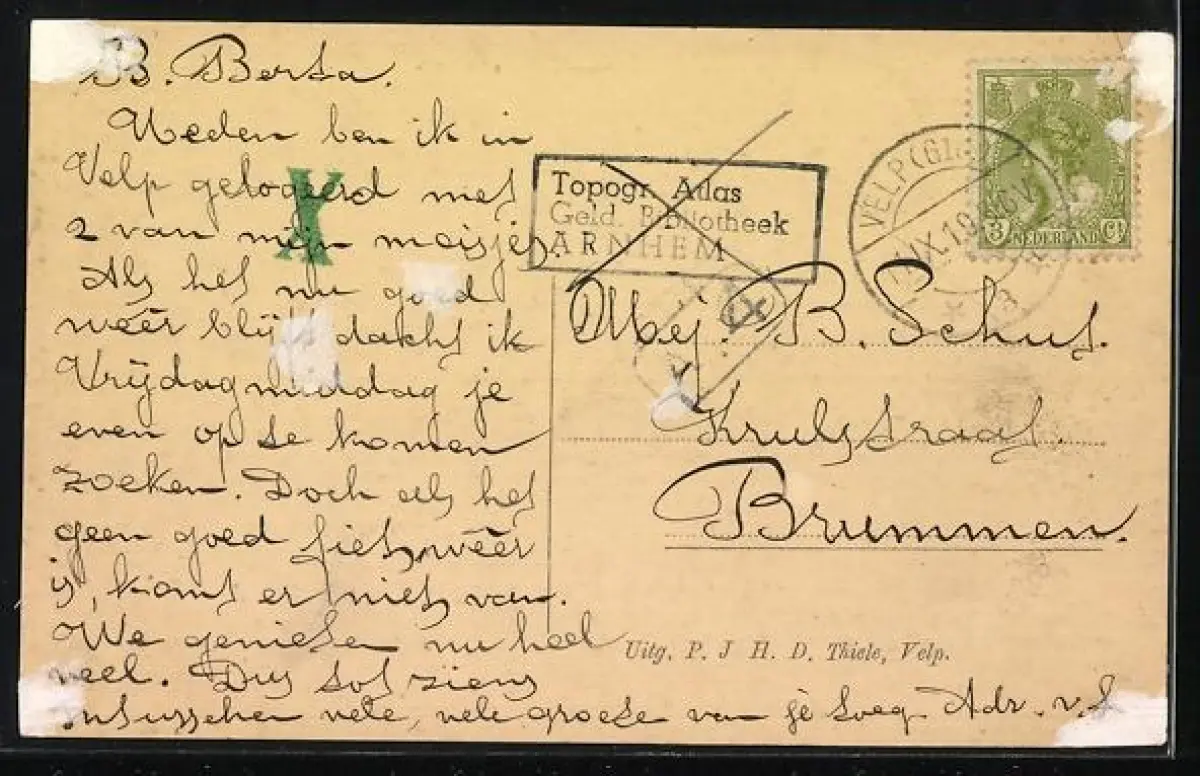 B. Berta.
Heden ben ik in
Velp gelogeerd met
2 van mijn meisjes.
Als het nu goed
wéér blijft dacht ik
Vrijdagmiddag je
even op te komen
zoeken. Doch als het
geen goed fietswéér
is, komt er niets van.
We genieten nu heel
veel. Dus tot ziens
intusschen vele, vele groete van je toeg. Adr. v.
Topogr. Atlas
Geld. Bibliotheek
ARNHEM
VELP
3 NEDERLAND Ct
Mej. B. Schut.
Brummen.
Uitg. P. J H. D. Thiele, Velp.